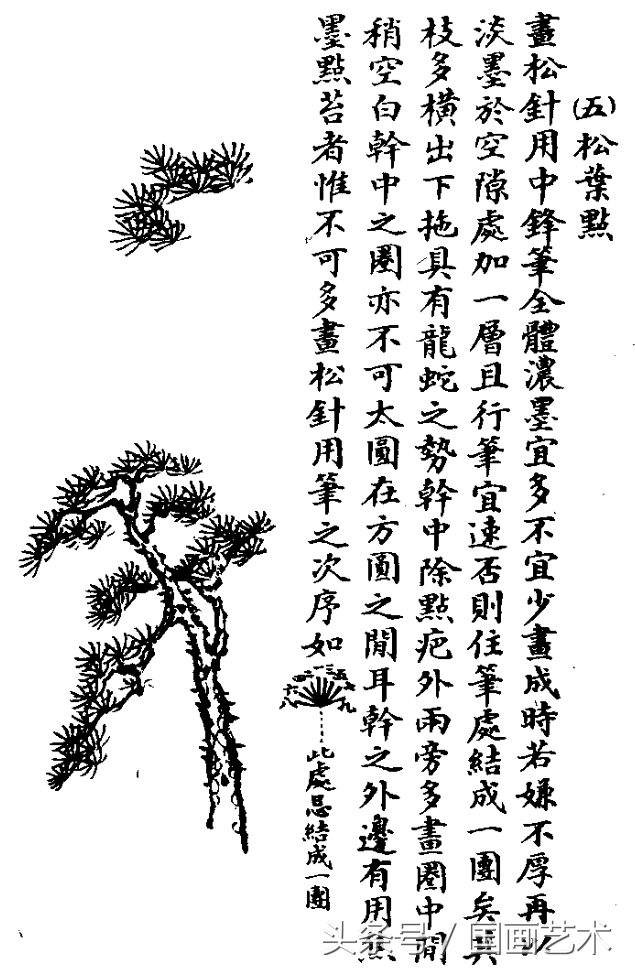 (五)松葉點
畫松針用中鋒筆全體濃墨宜多不宜少畫成時若嫌不厚再以
淡墨於空隙處加一層且行筆宜速否則住筆處結成一團矣其
枝多橫出下拖具有龍蛇之勢幹中除點疤外兩旁多畫圈中間
稍空白幹中之圈亦不可太圓在方圓之間耳幹之外邊有用焦
墨點苔者惟不可多畫松針用筆之次序如
八六四二一三五七九
此處忌結成一團
头条号/国画艺术